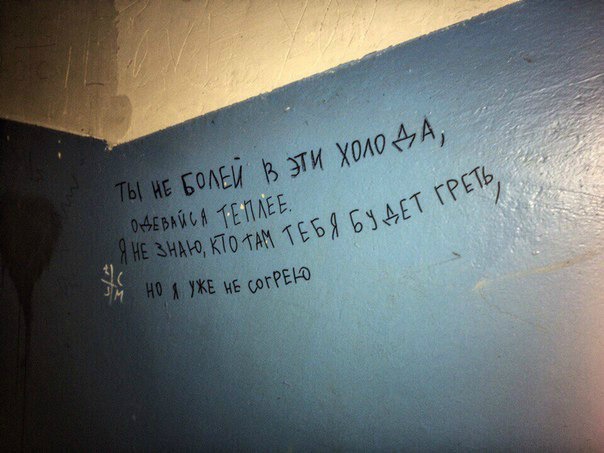 ТЫ НЕ БОЛЕЙ В ЭТИ ХОЛОДА,
ОДЕВАЙСЯ ТЕПЛЕЕ.
Я НЕ ЗНАЮ, КТО ТАМ ТЕБЯ БУДЕТ ГРЕТЬ,
НО Я УЖЕ НЕ СОГРЕЮ